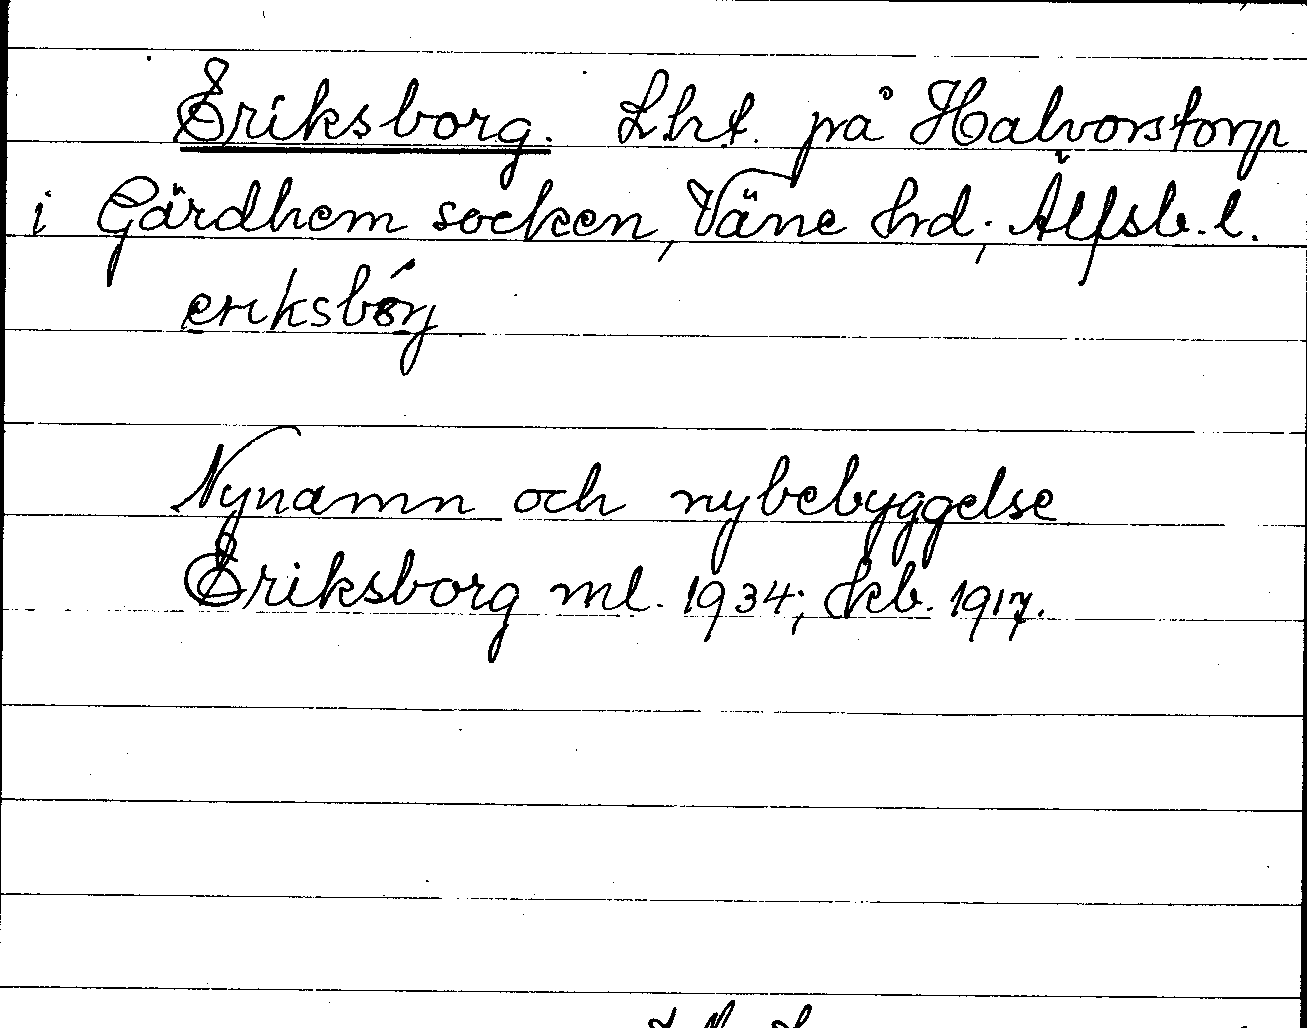 Eriksborg. Lht. på Halvorstorp
i Gärdhem socken, Väne hrd; Älfsb. l.
eriksbórj
Nynamn och nybebyggelse
Eriksborg ml. 1934; kb. 1917.